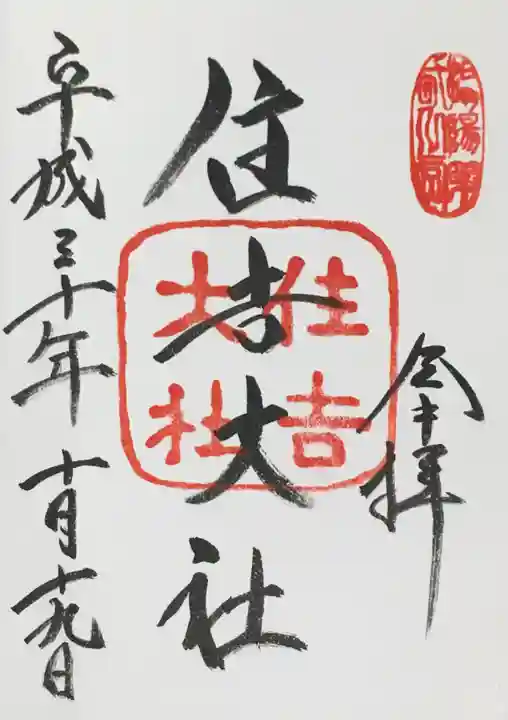 参拝
住吉大社
住吉
大社
平成三十年 十月十九日